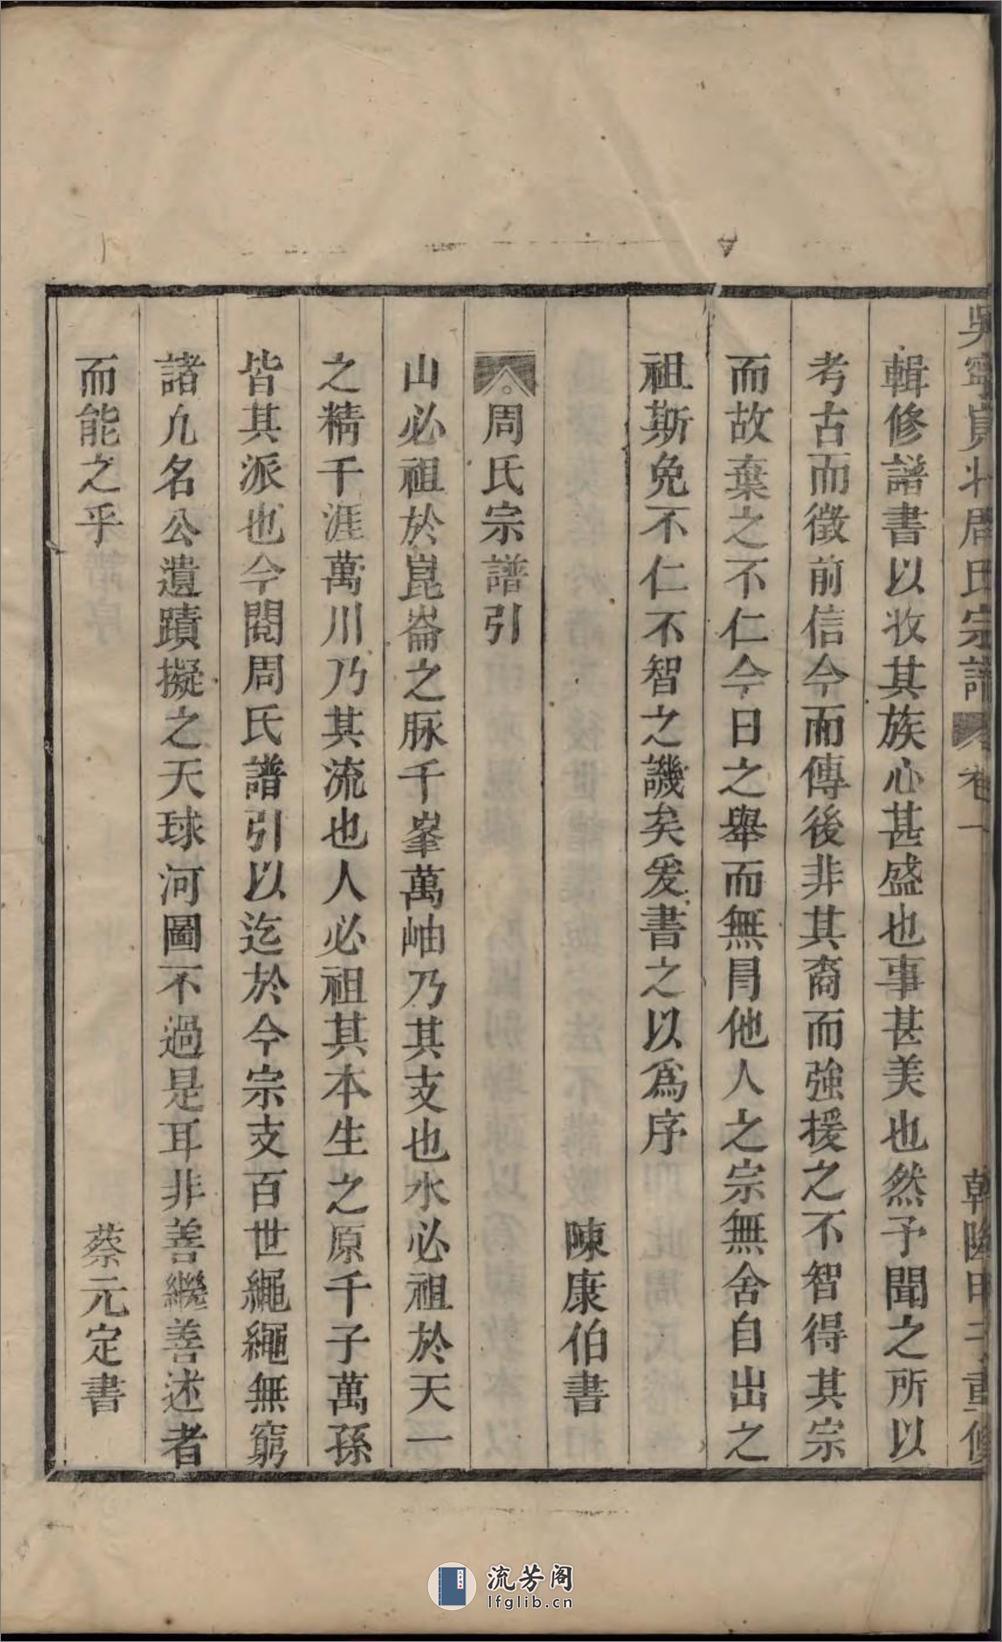 吳寧貢北周氏宗譜 卷一 乾隆甲子重修
輯修譜書以收其族心甚盛也事甚美也然予聞之所以
考古而徵前信今而傳後非其裔而強援之不智得其宗
而故棄之不仁今日之舉而無冐他人之宗無舍自出之
祖斯免不仁不智之譏矣爰書之以為序
陳康伯書
周氏宗譜引
山必祖於崑崙之脉千峯萬岫乃其支也水必祖於天一
之精千涯萬川乃其流也人必祖其本生之原千子萬孫
皆其派也今閱周氏譜引以迄於今宗支百世繩繩無窮
諸九名公遺蹟擬之天球河圖不過是耳非善繼善述者
而能之乎
蔡元定書
流芳阁
lfglib.cn